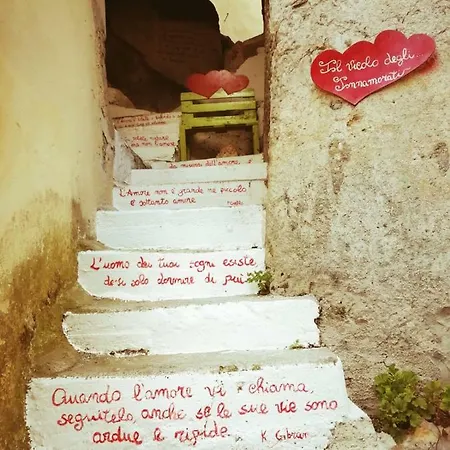 Il vicolo degli
Innamorati
La misura dell'amore
L'Amore non è grande né piccolo
è soltanto amore
L'uomo dei tuoi sogni esiste,
devi solo dormire di più
Quando l'amore vi chiama,
seguitelo, anche se le sue vie sono
ardue e ripide.
K Gibran